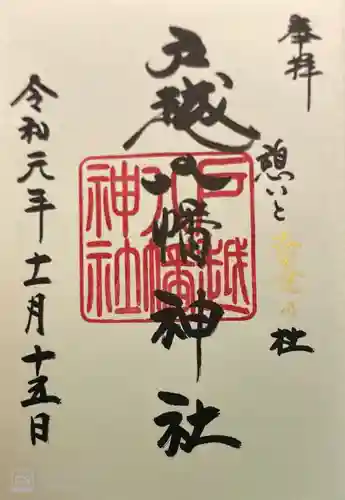 奉拝
憩いと
の杜
戸越八幡神社
戸越
八幡
神社
令和元年十一月十五日